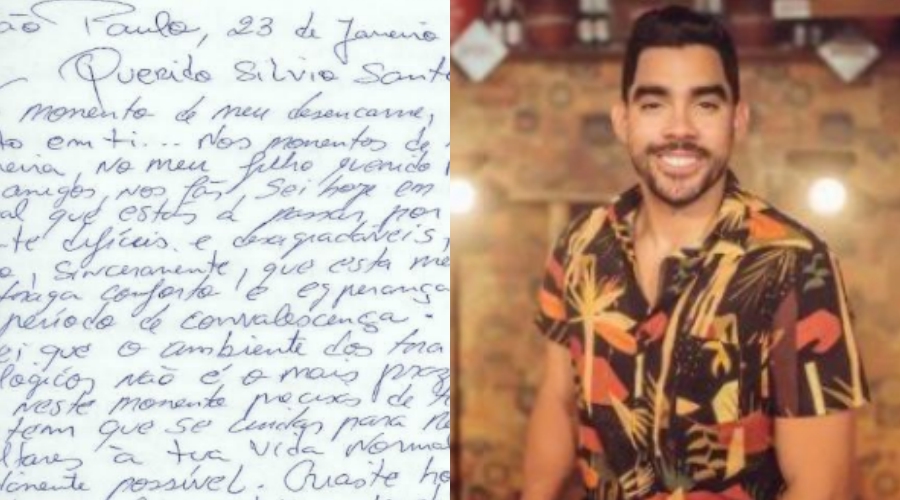 ão Paulo, 23 de Janeiro
Querido Silvio Sant
momento de meu desencarne,
to em ti... Nos momentos de
neira, no meu filho querido
amigos, nos fãs. Sei hoje em
al que estás a passar por
te difíceis e desagradáveis,
o, sinceramente, que esta me
traga conforto e esperança
período de convalescença.
ei que o ambiente dos
lógicos não é o mais praz
neste momento precisas de
tem que se cuidar para
ltares à tua vida normal
damente possível. Quaste ho